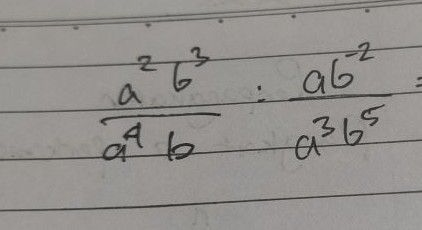 a² b³ / a⁴ b : ab⁻² / a³b⁵ =